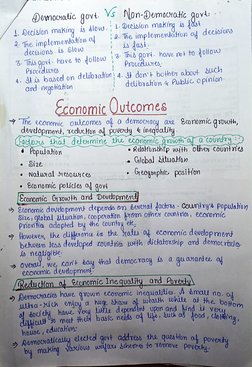 Democratic govt. Vs Non-Democratic govt.
1. Decision making is slow.
2. The implementation of
decisions is slow
3. This govt. have to follow
Procedures.
4. It is based on deliberation
and negotiation
1. Decision making is fast
2. The implementation of decisions
is fast.
3. This govt. have not to follow
Procedures.
4. It don't bother about such
deliberation & Public Opinion
Economic Outcomes
→ The economic outcomes of a democracy are Economic growth,
development, reduction of poverty & inequality
Factors that determine the economic growth of a country :-
• Population
• Size
• Natural resources
• Economic policies of govt
• Relationship with other countries
• Global situation
• Geographic position
Economic Growth and Development
→ Economic development depends on several factors - country's population
size, global situation, cooperation from other countries, economic
priorities adopted by the country etc,
→ However, the difference in the rates of economic development
between less developed countries with dictatorship and democracies
is negligible.
→ Overall, we can't say that democracy is a guarantee of
economic development.
Reduction of Economic Inequality and Poverty
→ Democracies have grown economic inequalities. A small no. of
ultra-rich enjoy a huge share of wealth while at the bottom
of society have very little depended upon and find it very
difficult to meet their basic needs of life, such as food, clothing,
house, education.
→ Democratically elected govt address the question of poverty
by making various welfare schemes to remove poverty.